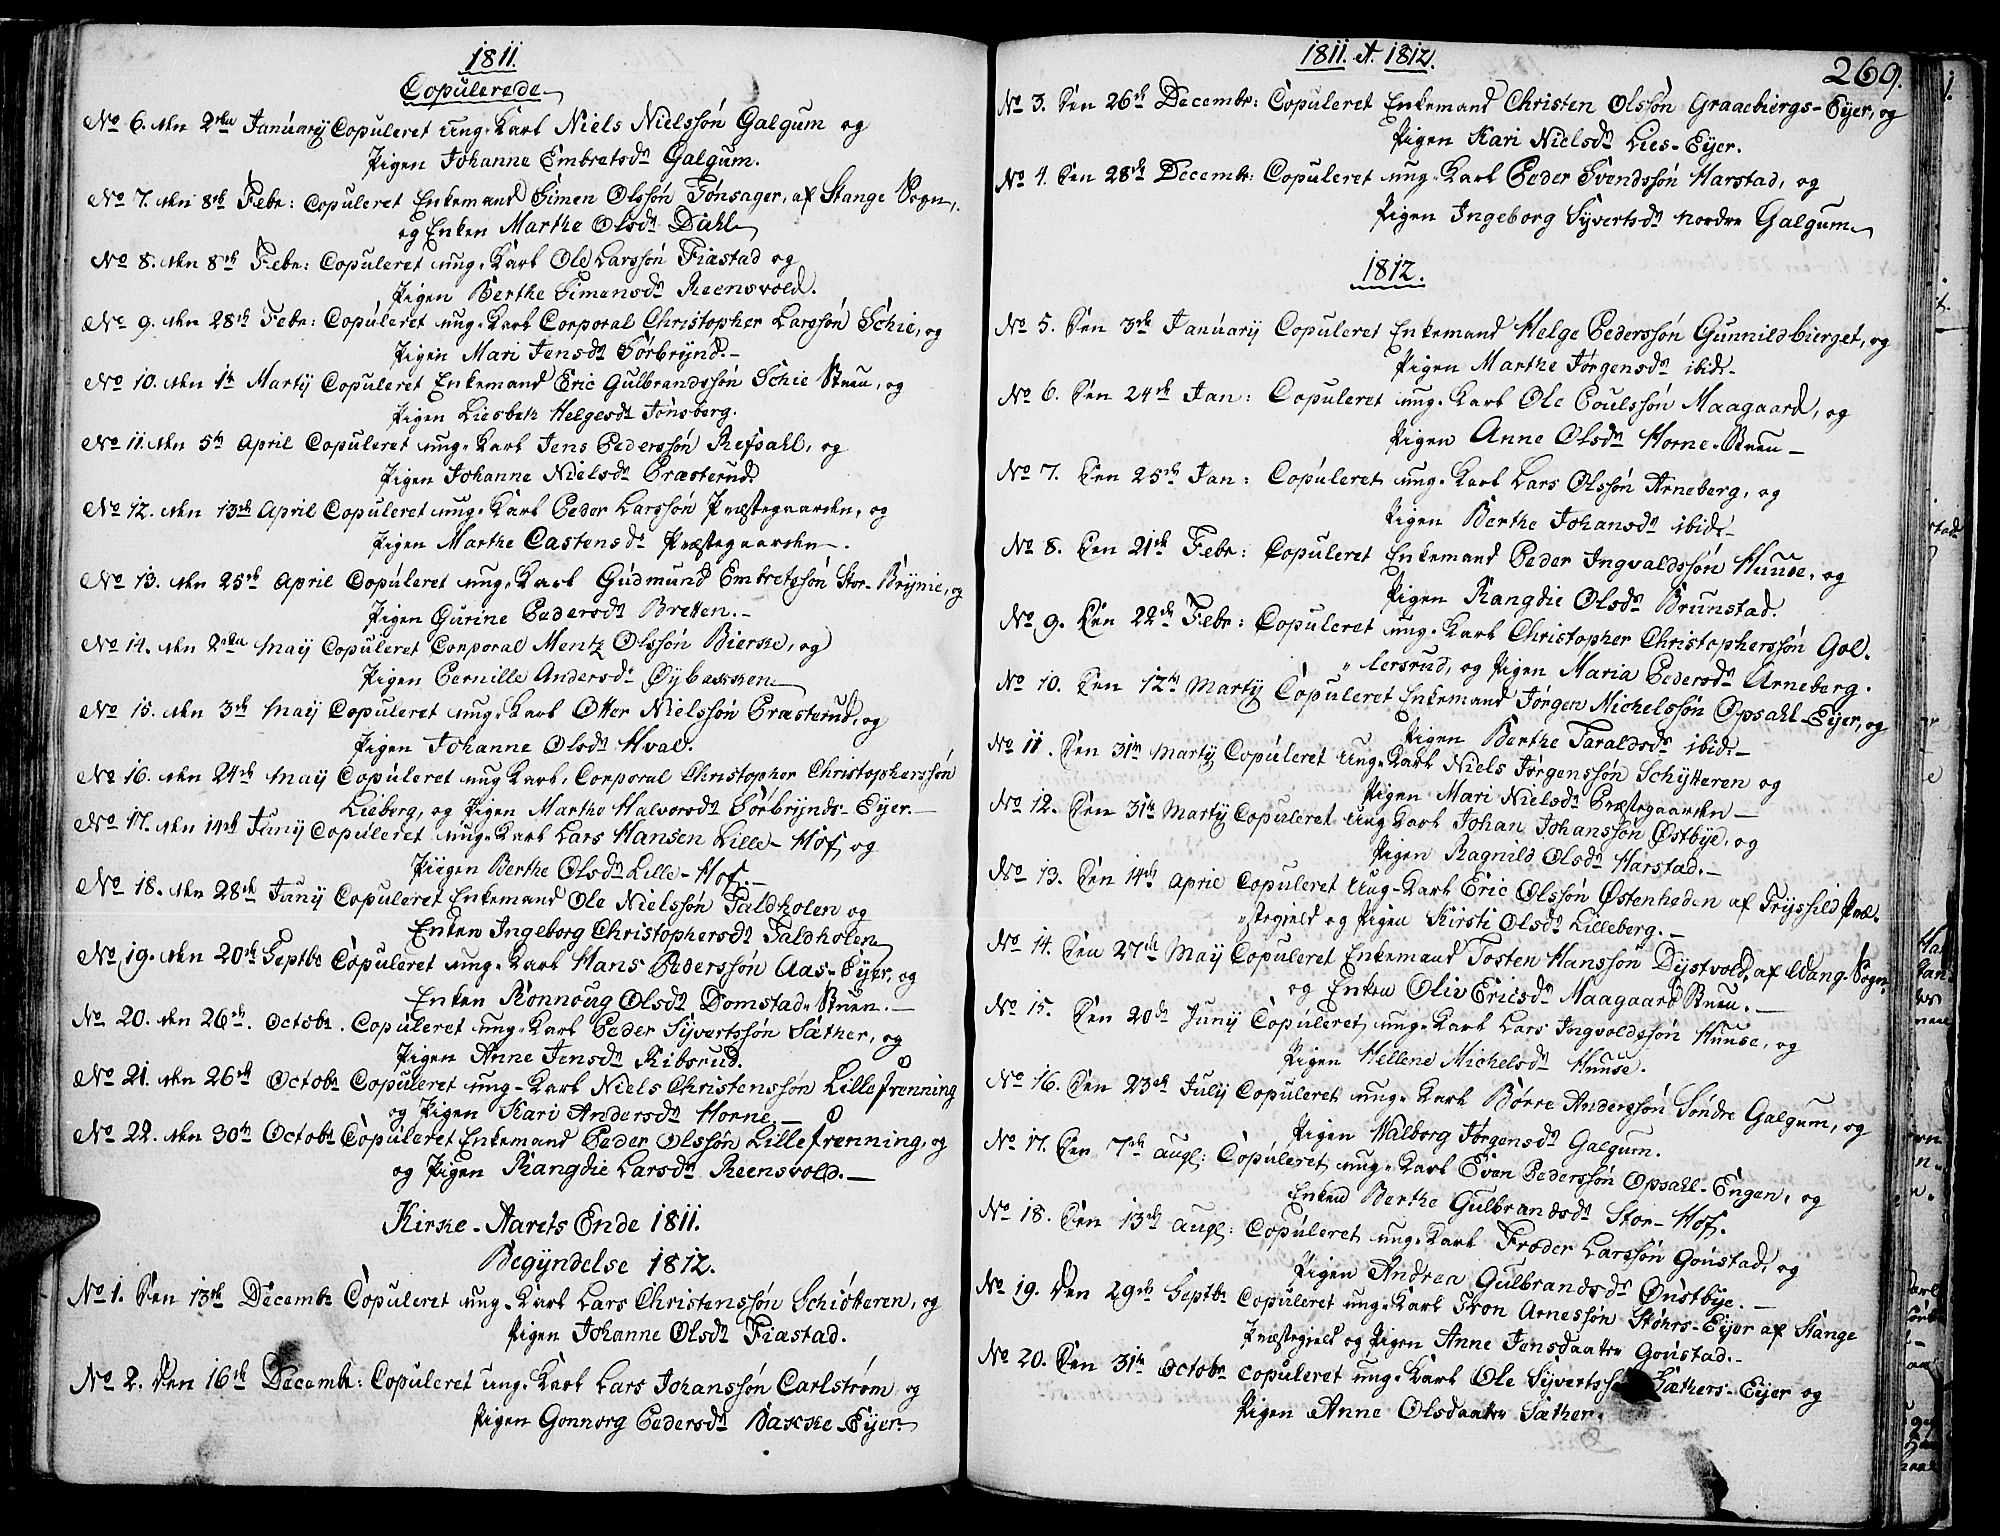 1811.
Copulerede
No 6. den 2den Januarÿ Copuleret ung-Karl Niels Nielssøn Galgum og
Pigen Johanne Embretsdr Galgum.
No 7. den 8de Febr: Copuleret Enkemand Simen Olssøn Tønsager, af Stange Sogn,
og Enken Marthe Olsdr Dahl
No 8. den 8de Febr: Copuleret ung-Karl Ole Larssøn Fiæstad og
Pigen Berthe Simensdr Reensvold.
No 9. den 28de Febr: Copuleret ung-Karl Corporal Christopher Larssøn Schie, og
Pigen Mari Jensdr Sørbrÿnd.-
No 10. den 1te Martÿ Copuleret Enkemand Eric Gulbrandssøn Schie Stuu, og
Pigen Liesbeth Helgesdr Jønsberg.
No 11. den 5te April Copuleret ung-Karl Jens Pederssøn Refsahl, og
Pigen Johanne Nielsdr Præsterud.
No 12. den 13de April Copuleret ung-Karl Peder Larssøn Præstegaarden, og
Pigen Marthe Castensdr Præstegaarden.
No 13. den 25de April Copuleret ung-Karl Gudmund Embretssøn Stor-Brÿnie, og
Pigen Gurine Pedersdr Bretten.-
No 14. den 2den Maÿ Copuleret Corporal Mentz Olssøn Bierke, og
Pigen Pernille Andersdr Øÿbakken
No 15. den 3de Maÿ Copuleret ung-Karl Otter Nielssøn Præsterud, og
Pigen Johanne Olsdr Hval.
No 16. den 24de Maÿ Copuleret ung Karl, Corporal Christopher Christopherssøn
Lieberg, og Pigen Marthe Halvorsdr Sørbrÿnds-Eÿer.-
No 17. den 14de Junÿ Copuleret ung-Karl Lars Hansen Lille-Hof, og
Piigen Berthe Olsdr Lille-Hof.-
No 18. den 28de Junÿ Copuleret Enkemand Ole Nielssøn Faldholen og
Enken Ingeborg Christophersdr Faldholen
No 19. den 20de Septbr Copuleret ung-Karl Hans Pederssøn Aas-Eÿer, og
Enken Ronnoug Olsdr Domstad-Stuen.-
No 20. den 26de. Octobr. Copuleret ung-Karl Peder Sÿvertssøn Sæther, og
Pigen Anne Jensdr Kibsrud.
No 21. den 26de Octobr Copuleret ung-Karl Niels Christenssøn Lille Frenning
og Pigen Kari Andersdr Horne.-
No 22. den 30te Octobr Copuleret Enkemand Peder Olssøn Lille Frenning, og
og Pigen Rangdie Larsdr Reensvold.-
Kirke-Aarets Ende 1811.
Begÿndelse 1812.
No 1. Den 13de Decembr Copuleret ung-Karl Lars Christenssøn Schiøtteren, og
Pigen Johanne Olsdr Fiæstad.
No 2. Den 16de Decembr: Copuleret ung-Karl Lars Johanssøn Carlstrøm, og
Pigen Gonnorg Pedersdr Bakke-Eÿer
1811. et. 1812.
269.
No 3. Den 26de Decembr: Copuleret Enkemand Christen Olssøn Graaebiergs-Eÿer, og
Pigen Kari Nielsdr Lies-Eÿer.
No 4. Den 28de Decembr: Copuleret ung-Karl Peder Svendssøn Harstad, og
Pigen Ingeborg Sÿvertsdr nordre Galgum
1812.
No 5. Den 3de Januarÿ Copuleret Enkemand Helge Pederssøn Gunnildbierget, og
Pigen Marthe Jørgensdr ibid.-
No 6. Den 24de Jan: Copuleret ung-Karl Ole Poulssøn Maagaard, og
Pigen Anne Olsdr Horne-Stuu-
No 7. Den 25de Jan: Copuleret ung-Karl Lars Olssøn Arneberg, og
Pigen Berthe Johansdr ibid.-
No 8. Den 21de Febr: Copuleret Enkemand Peder Ingvaldssøn Huuse, og
Pigen Rangdie Olsdr Brunstad.
No 9. Den 22de Febr: Copuleret ung-Karl Christopher Christopherssøn Gol-
lersrud, og Pigen Maria Pedersdr Arneberg.
No 10. Den 12te Martÿ Copuleret Enkemand Jørgen Michelssøn Opsahl-Eÿer, og
Pigen Berthe Taraldsdr ibid.-
No 11. Den 31te Martÿ Copuleret Ung-Karl Niels Jørgenssøn Schÿtteren og
Pigen Mari Nielsdr Præstegaarden-
No 12. Den 31te Martÿ Copuleret Ung Karl Johan Johanssøn Østbÿe, og
Pigen Ragnild Olsdr Harstad.-
No 13. Den 14de April Copuleret Ung-Karl Eric Olssøn Østenheden af Trÿssild Præ-
stegield og Pigen Kirsti Olsdr Lilleberg.-
No 14. Den 27de Maÿ Copuleret Enkemand Tosten Hanssøn Dÿstvold, af Wang-Sogn,
og Enken Oliv Ericsdr Maagaard Stuu.-
No 15. Den 20de Junÿ Copuleret, ung-Karl Lars Ingvoldssøn Huuse, og
Pigen Hellene Michelsdr Huuse.
No 16. Den 23de Julÿ Copuleret ung-Karl Børre Anderssøn Søndre Galgum, og
Pigen Walborg Jørgensdr Galgum.
No 17. Den 7de Augt: Copuleret ung-Karl Even Pederssøn Opsahl-Engen, og
Enken Berthe Gulbrandsdr Stor-Hof.
No 18. Den 13de Augt: Copuleret ung-Karl Froder Larssøn Gonstad, og
Pigen Andrea Gulbrandsdr Ønstbÿe.-
No 19. Den 29de Septbr Copuleret ung-Karl Iron Arnessøn Støhrs-Eÿer af Stange
Præstegield og Pigen Anne Jensdaatter Gonstad.-
No 20. Den 31te Octobr copuleret ung-Karl Ole Sÿvertssøn Sæthers-Eÿer og
Pigen Anne Olsdaatter Sæther.